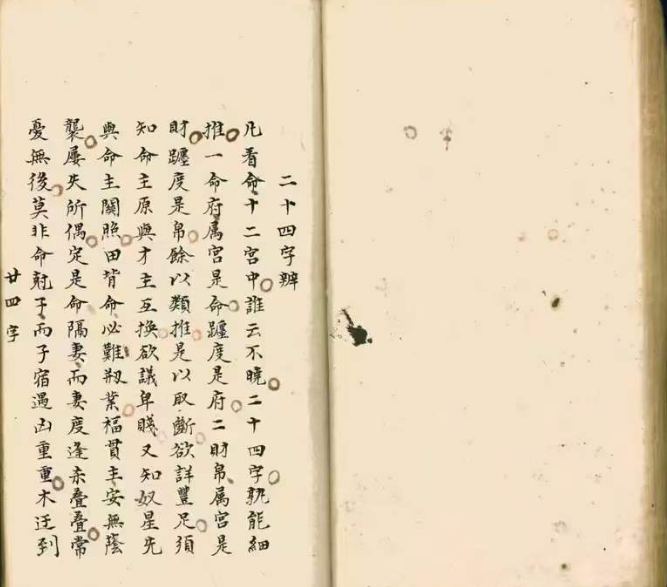 二十四字辨
凡看命十二宮中誰云不曉二十四字孰能細
推一命府属宮是命躔度是府二財帛属宮是
財躔度是帛餘以類推是以取斷欲詳豐足須
知命主原與才主互換欲議卑賤又知奴星先
與命主關照田背命必難刱業福貫主安無蔭
襲屡失所偶定是命隔妻而妻度逢赤叠叠常
憂無後莫非命尅子而子宿遇凶重重木迋到
廿四字